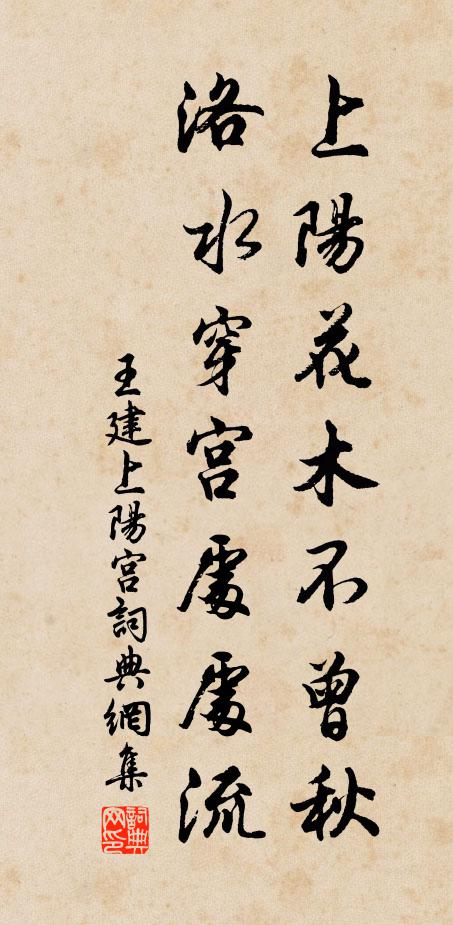 上陽花木不曾秋
洛水穿宮處處流
王建上陽宮詞典網集
詞典网印